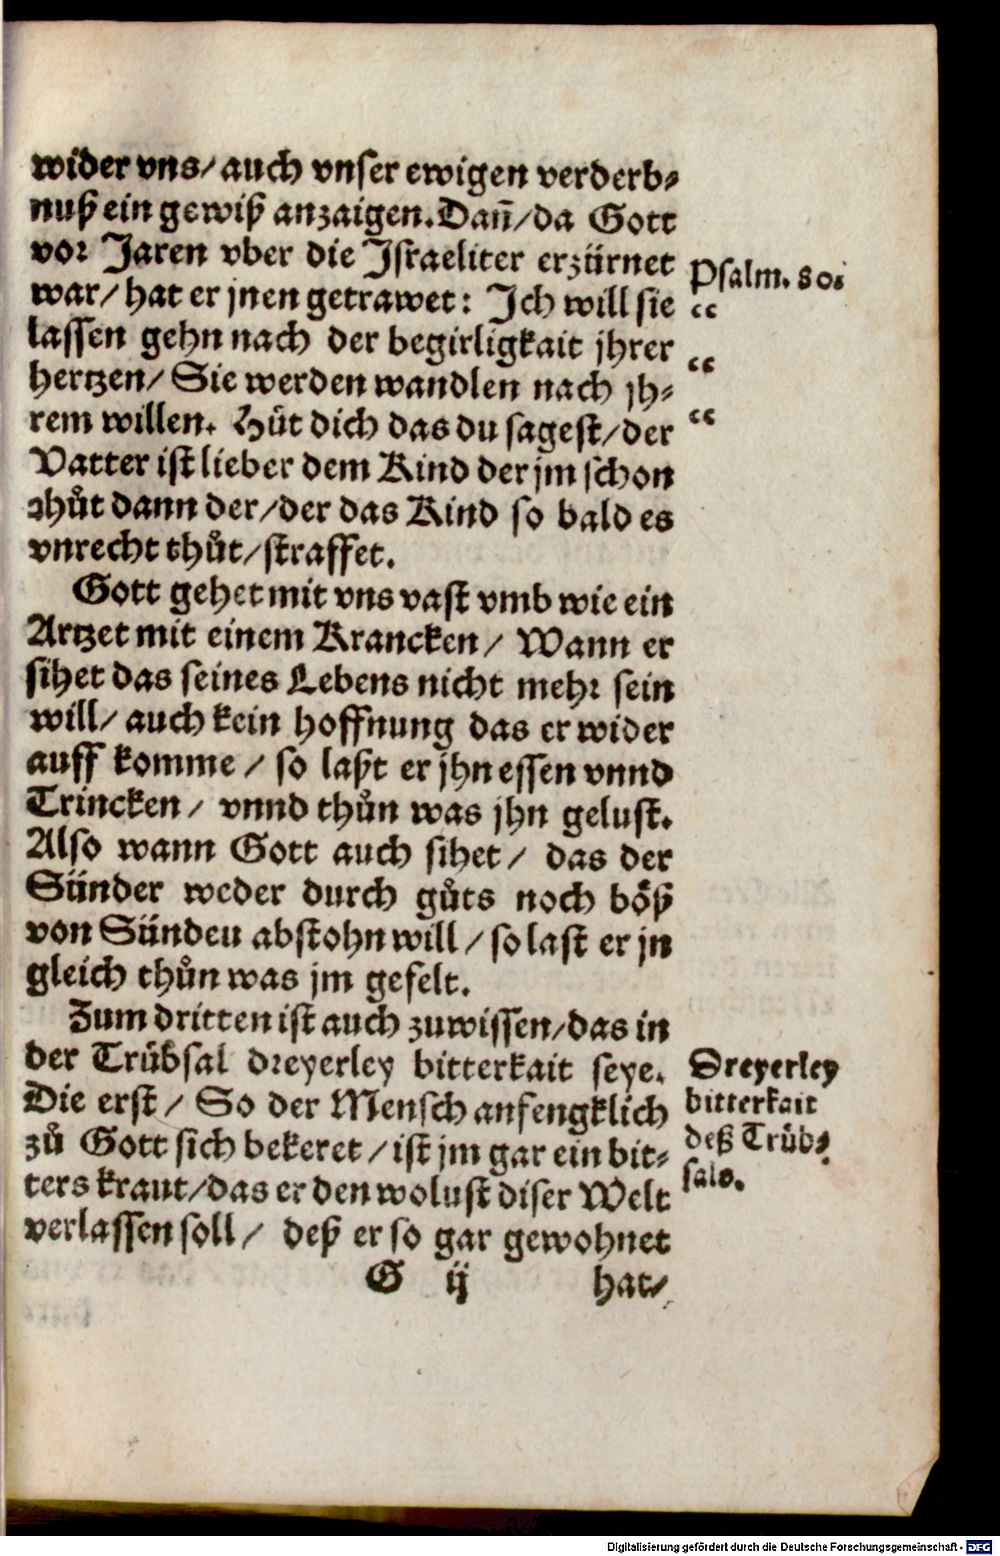 wider vns/ auch vnser ewigen verderb⸗
nuß ein gewiß anzaigen. Dañ/ da Gott
vor Jaren vber die Israeliter erzürnet
Psalm. 80.
war/ hat er jnen getrawet: Ich will sie
“
lassen gehn nach der begirligkait jhrer
“
hertzen/ Sie werden wandlen nach jh⸗
“
rem willen. Hüt dich das du sagest/ der
Vatter ist lieber dem Kind der jm schon
thůt dann der/ der das Kind so bald es
vnrecht thůt/ straffet.
Gott gehet mit vns vast vmb wie ein
Artzet mit einem Krancken/ Wann er
sihet das seines Lebens nicht mehr sein
will/ auch kein hoffnung das er wider
auff komme / so laßt er jhn essen vnnd
Trincken/ vnnd thůn was jhn gelust.
Also wann Gott auch sihet/ das der
Sünder weder durch gůts noch böß
von Sünden abstohn will / so last er jn
gleich thůn was jm gefelt.
Zum dritten ist auch zuwissen/ das in
der Trübsal dreyerley bitterkait seye.
Dreyerley
Die erst / So der Mensch anfengklich
bitterkait
zů Gott sich bekeret / ist jm gar ein bit⸗
deß Trüb⸗
ters kraut/ das er den wolust diser Welt
sals.
verlassen soll / deß er so gar gewohnet
G ij hat/
Digitalisierung gefördert durch die Deutsche Forschungsgemeinschaft - DFG